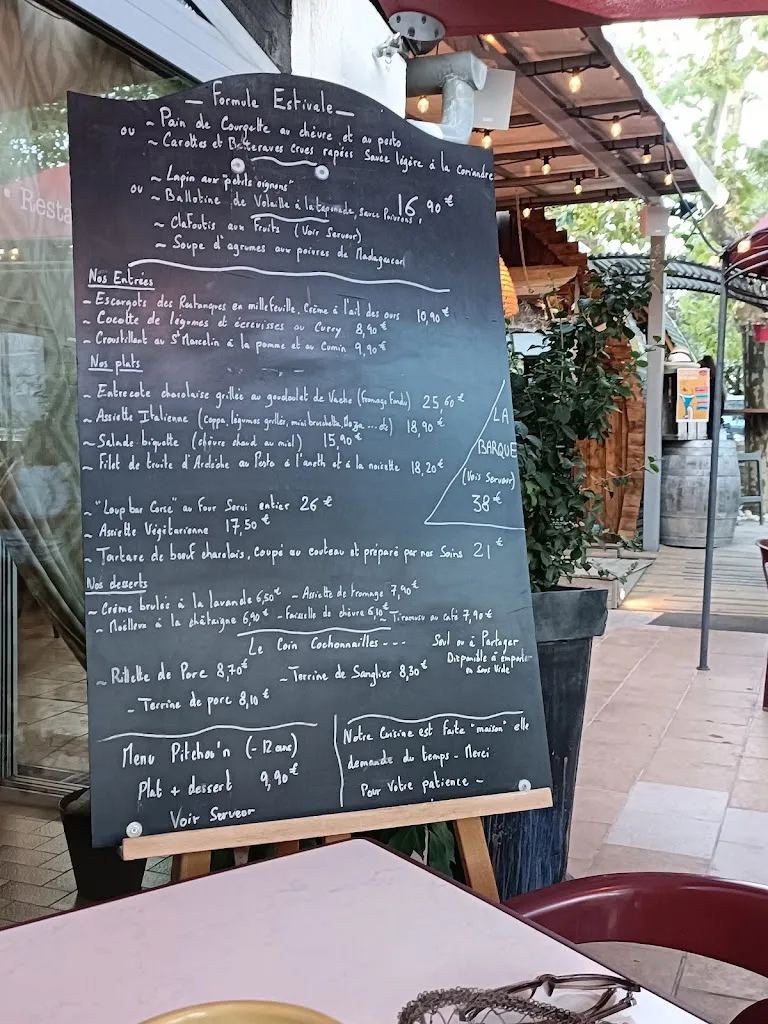 Resta
— Formule Estivale —
~ Pain de Courgette au chèvre et au pesto
ou
~ Carottes et Betteraves crues rapées Sauce légère à la coriandre
~ Lapin aux "petits oignons"
ou
~ Ballotine de Volaille à la tapenade, sauce Poivrons,
16,90 €
~ Clafoutis aux Fruits (Voir Serveur)
~ Soupe d'agrumes aux poivres de Madagascar
Nos Entrées
~ Escargots des Restanques en millefeuille, Crème à l'ail des ours 10,90 €
~ Cocotte de légumes et écrevisses au Curry 8,90 €
~ Croustillant au St Marcelin à la pomme et au Cumin 9,90 €
Nos plats
~ Entrecote charolaise grillée au goudoulet de Vache (fromage fondu) 25,60 €
~ Assiette Italienne (coppa, légumes grillés, mini bruschetta, Mozza ... etc) 18,90 €
~ Salade biquette (chèvre chaud au miel) 15,90 €
~ Filet de truite d'Ardèche au Pesto à l'aneth et à la noisette 18,20 €
LA
BARQUE
(Vois Serveur)
38 €
~ "Loup bar Corse" au Four Servi entier 26 €
~ Assiette Végétarienne 17,50 €
~ Tartare de bœuf charolais, Coupé au couteau et préparé par nos Soins 21 €
Nos desserts
~ Crème brulée à la lavande 6,50€ - Assiette de fromage 7,90€
~ Moëlleux à la châtaigne 6,90€ - Faisselle de chèvre 6,10€ ~ Tiramisu au café 7,90€
Le Coin Cochonnailles - - -
Seul ou à Partager
Disponible à emporter
en Sous Vide
~ Rillette de Porc 8,70€
~ Terrine de Sanglier 8,30€
- Terrine de porc 8,10€
Menu Pitchou'n (-12 ans)
Plat + dessert 9,90€
Voir Serveur
Notre Cuisine est faite "maison" elle
demande du temps - Merci
Pour Votre patience -